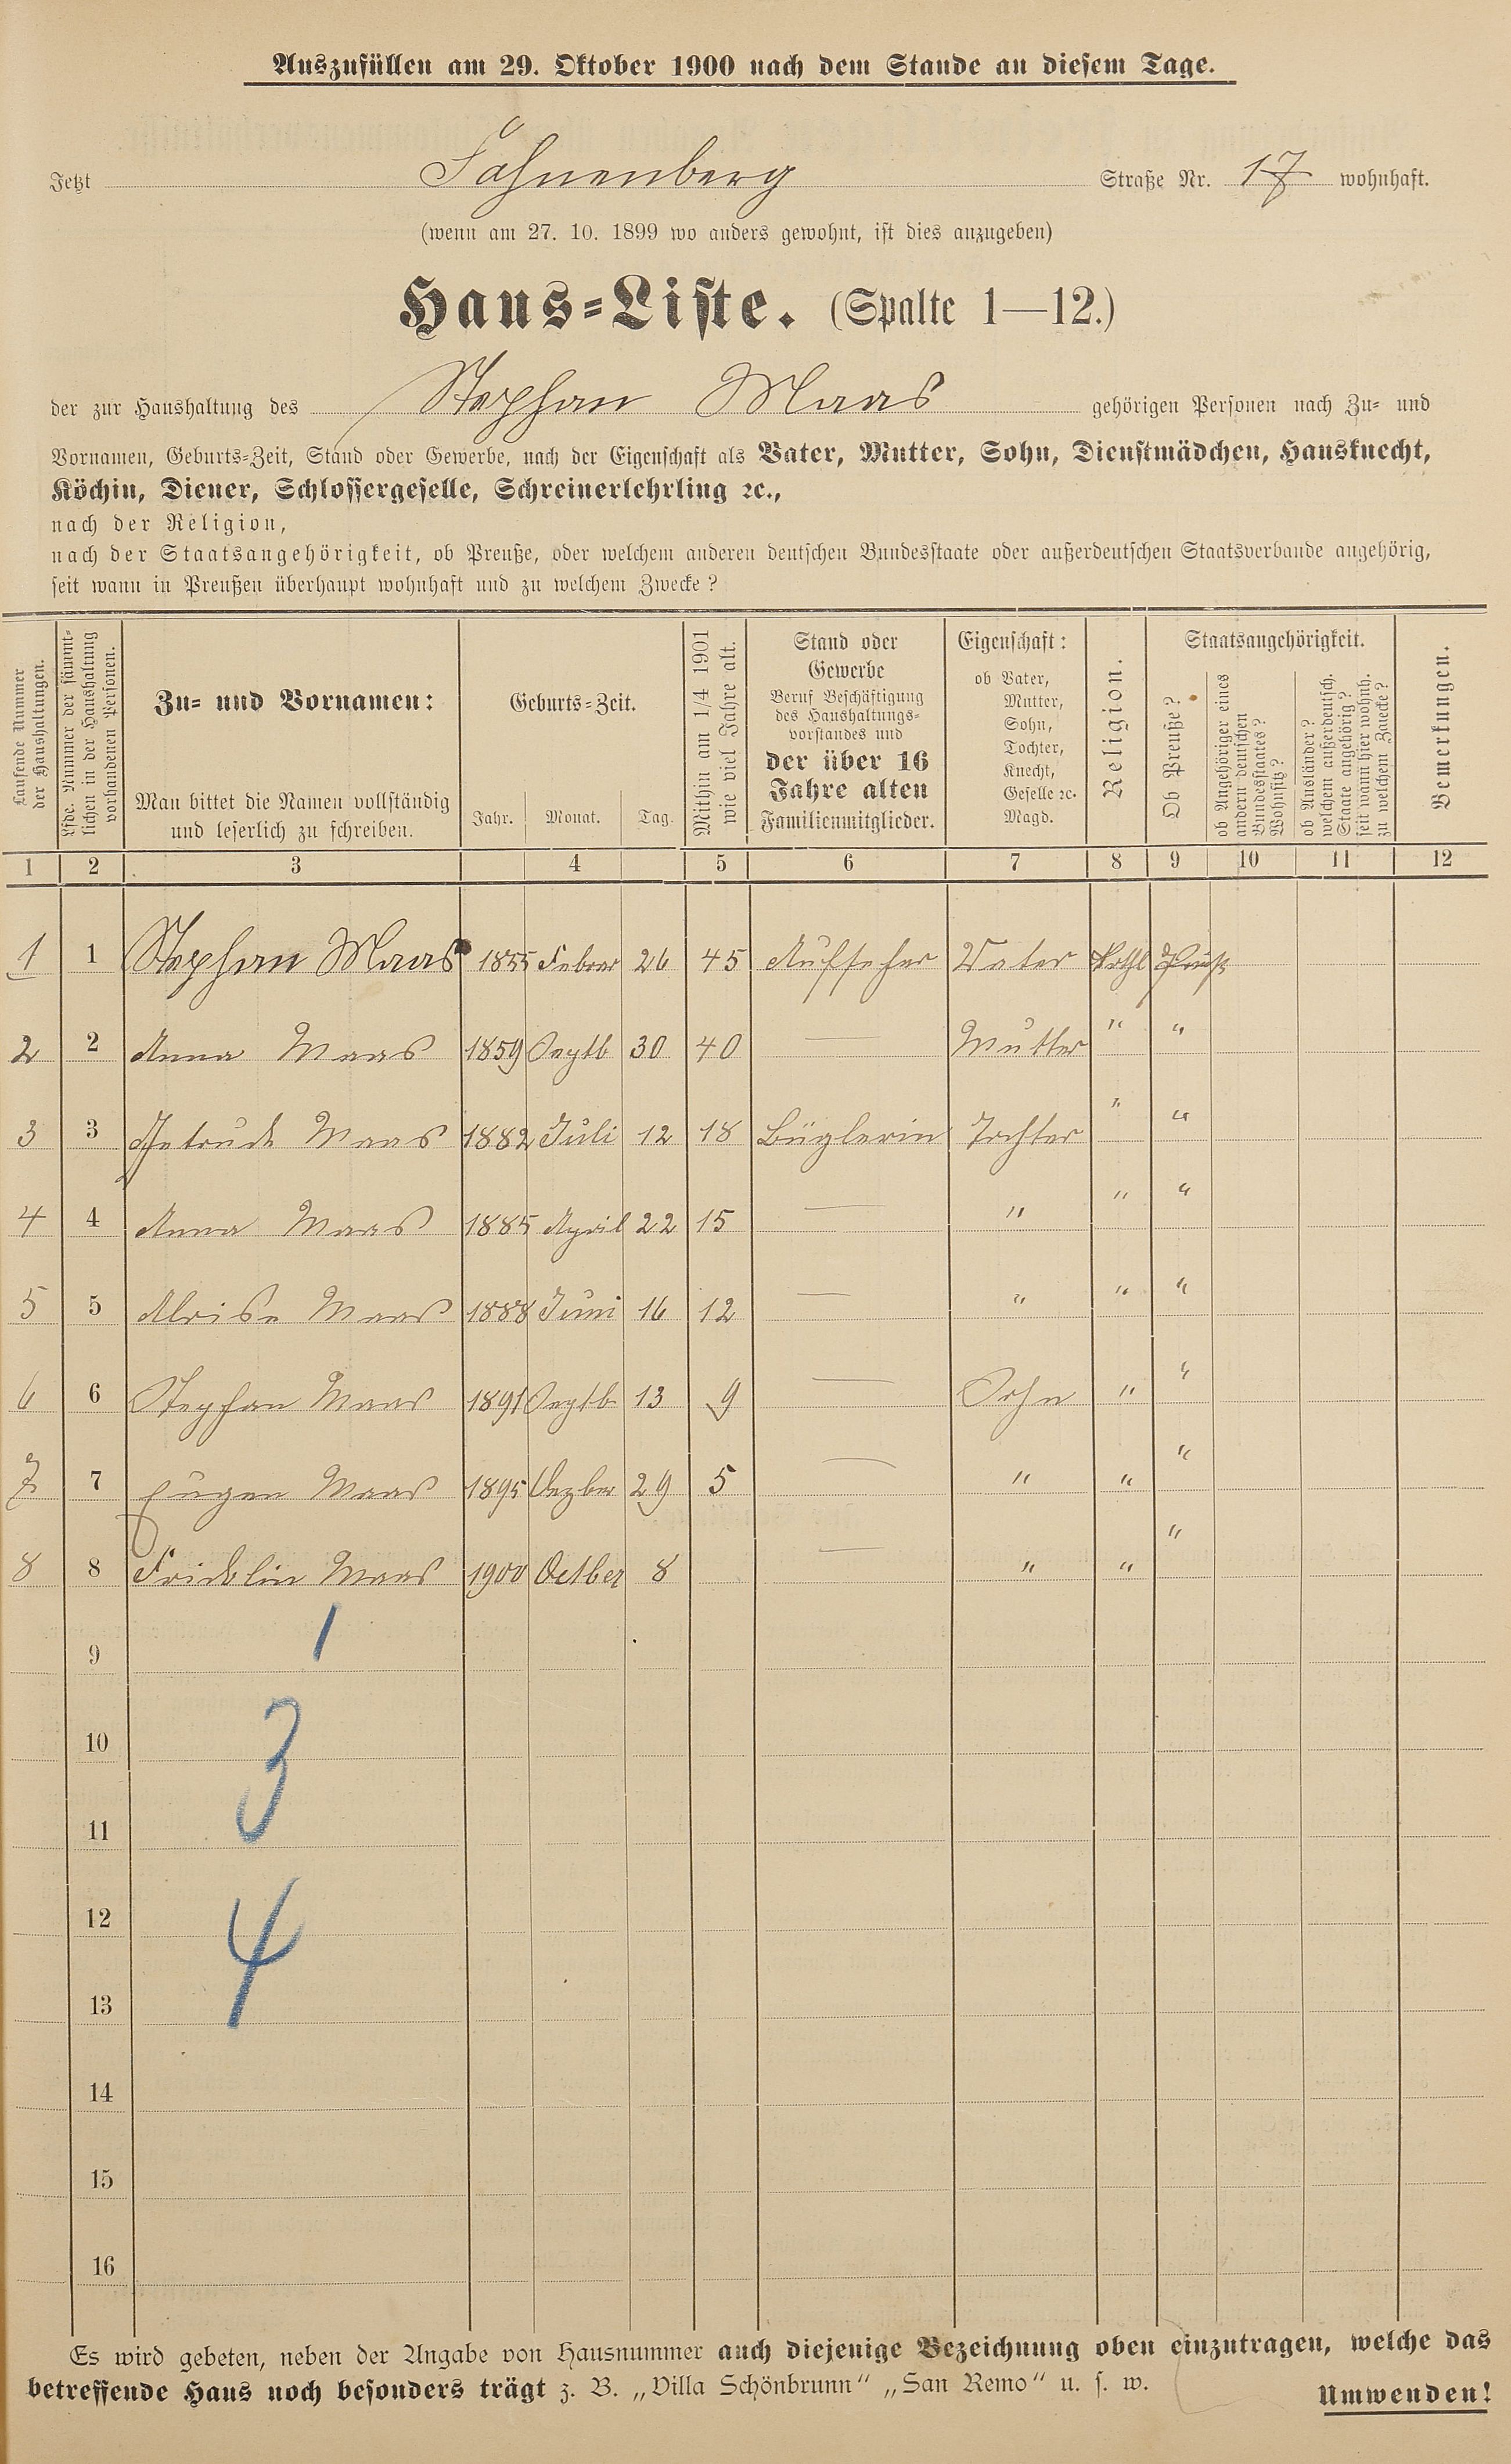 Auszufüllen am 29. Oktober 1900 nach dem Stande an diesem Tage.
Jetzt Fahnenberg Straße Nr. 17 wohnhaft.
(wenn am 27. 10. 1899 wo anders gewohnt, ist dies anzugeben)
Haus-Liste. (Spalte 1—12.)
der zur Haushaltung des Stephan Maas gehörigen Personen nach Zu- und
Vornamen, Geburts-Zeit, Stand oder Gewerbe, nach der Eigenschaft als Vater, Mutter, Sohn, Dienstmädchen, Hausknecht,
Köchin, Diener, Schlossergeselle, Schreinerlehrling ꝛc.,
nach der Religion,
nach der Staatsangehörigkeit, ob Preuße, oder welchem anderen deutschen Bundesstaate oder außerdeutschen Staatsverbande angehörig,
seit wann in Preußen überhaupt wohnhaft und zu welchem Zwecke?
Laufende Nummer
der Haushaltungen.
Lfde. Nummer der sämmt-
lichen in der Haushaltung
vorhandenen Personen.
Zu- und Vornamen:
Man bittet die Namen vollständig
und leserlich zu schreiben.
Geburts-Zeit.
Jahr. Monat. Tag.
Mithin am 1/4 1901
wie viel Jahre alt.
Stand oder
Gewerbe
Beruf Beschäftigung
des Haushaltungs-
vorstandes und
der über 16
Jahre alten
Familienmitglieder.
Eigenschaft:
ob Vater,
Mutter,
Sohn,
Tochter,
Knecht,
Geselle ꝛc.
Magd.
Religion.
Staatsangehörigkeit.
Ob Preuße?
ob Angehöriger eines
andern deutschen
Bundesstaates?
Wohnsitz?
ob Ausländer?
welchem außerdeutsch.
Staate angehörig?
seit wann hier wohnh.
zu welchem Zwecke?
Bemerkungen.
1 2 3 4 5 6 7 8 9 10 11 12
1 1 Stephan Maas 1855 Febrar 26 45 Aufseher Vater Kathl Preuß
2 2 Anna Maas 1859 Septb 30 40 — Mutter " "
3 3 Getrude Maas 1882 Juli 12 18 Büglerin Tochter " "
4 4 Anna Maas 1885 April 22 15 — " " "
5 5 Aloise Maas 1888 Juni 16 12 — " " "
6 6 Stephan Maas 1891 Septb 13 9 — Sohn " "
7 7 Eugen Maas 1895 Dezber 29 5 — " " "
8 8 Fridolin Maas 1900 Octber 8 — " " "
9 1
10 3
11
12 4
13
14
15
16
Es wird gebeten, neben der Angabe von Hausnummer auch diejenige Bezeichnung oben einzutragen, welche das
betreffende Haus noch besonders trägt z. B. „Villa Schönbrunn" „San Remo" u. s. w.
Umwenden!